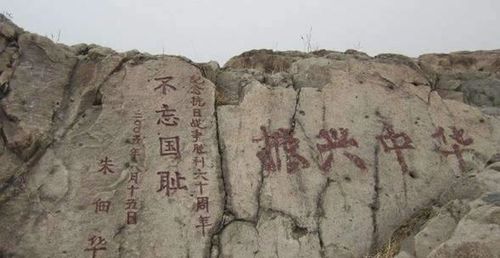 纪念抗日战争胜利六十周年
不忘国耻
二〇〇五年八月十五日
朱佃华
振兴中华